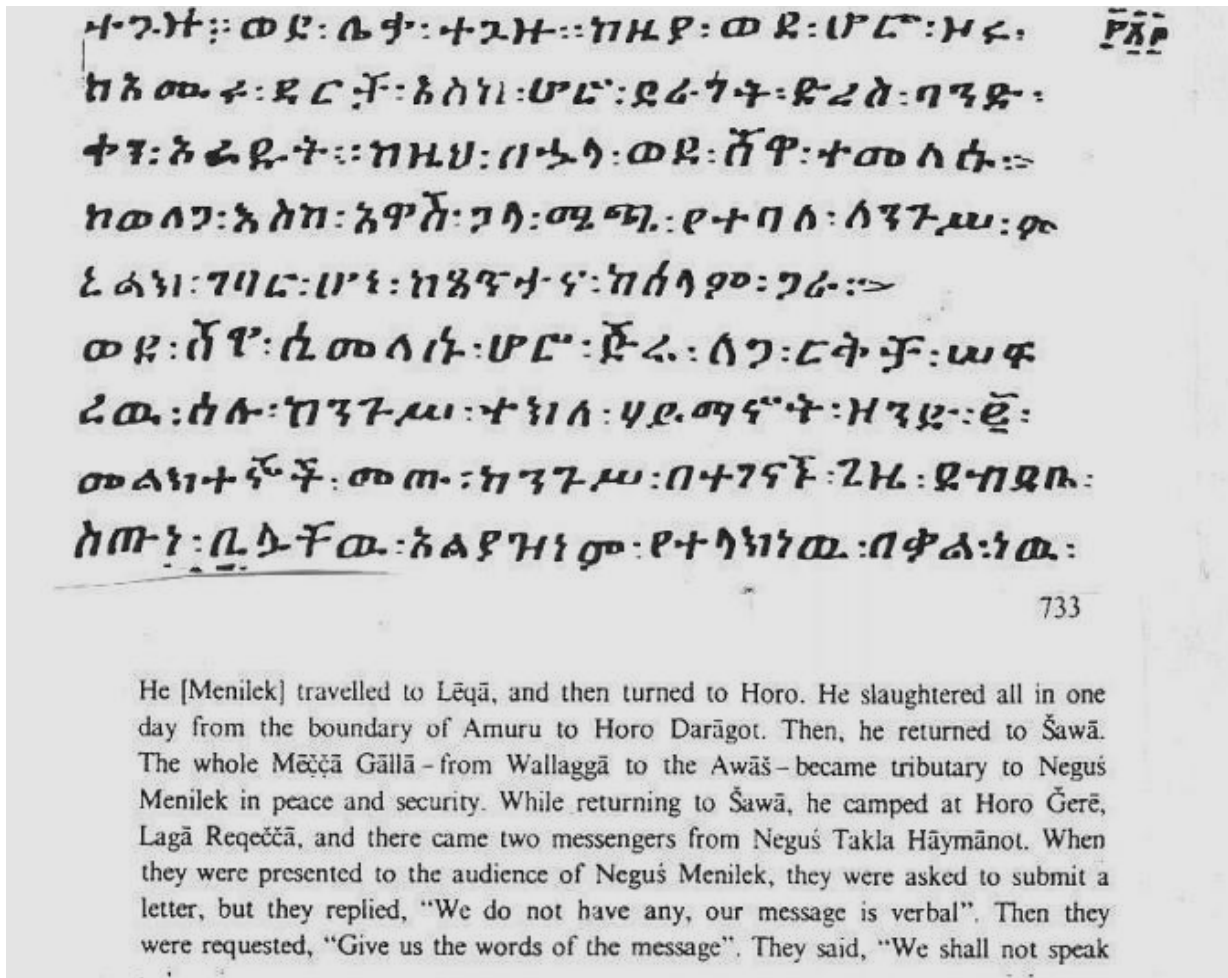 ተጓዙ። ወደ፡ ሌቃ፡ ተጓዙ። ከዚያ፡ ወደ፡ ሆሮ፡ ዞሩ፡
ከአሙሩ፡ ዳርቻ፡ እስከ፡ ሆሮ፡ ደራጎት፡ ድረስ፡ ባንድ፡
ቀን፡ አፈዱት። ከዚህ፡ በኋላ፡ ወደ፡ ሸዋ፡ ተመለሱ።
ከወለጋ፡ እስከ፡ አዋሽ፡ ጋላ፡ ሜጫ፡ የተባለ፡ ለንጉሥ፡ ም
ኒልክ፡ ገባር፡ ሆነ፡ ከጼጥታና፡ ከሰላም፡ ጋራ።
ወደ፡ ሸዋ፡ ሲመለሱ፡ ሆሮ፡ ጅሬ፡ ለጋ፡ ርቅቻ፡ ሠፍ
ረው፡ ሰሉ፡ ከንጉሥ፡ ተክለ፡ ሃይማኖት፡ ዘንድ፡ ፪፡
መልክተኞች፡ መጡ፡ ከንጉሥ፡ በተገናኙ፡ ጊዜ፡ ደብዳቤ፡
ስጡነ፡ ቢሏቸው፡ አልያዝነም፡ የተላክነው፡ በቃል፡ ነው፡
733
He [Menilek] travelled to Lēqā, and then turned to Horo. He slaughtered all in one
day from the boundary of Amuru to Horo Darāgot. Then, he returned to Šawā.
The whole Mēč̣č̣ā Gāllā – from Wallaggā to the Awāš – became tributary to Neguś
Menilek in peace and security. While returning to Šawā, he camped at Horo Ǧerē,
Lagā Reqeččā, and there came two messengers from Neguś Takla Hāymānot. When
they were presented to the audience of Neguś Menilek, they were asked to submit a
letter, but they replied, “We do not have any, our message is verbal”. Then they
were requested, “Give us the words of the message”. They said, “We shall not speak